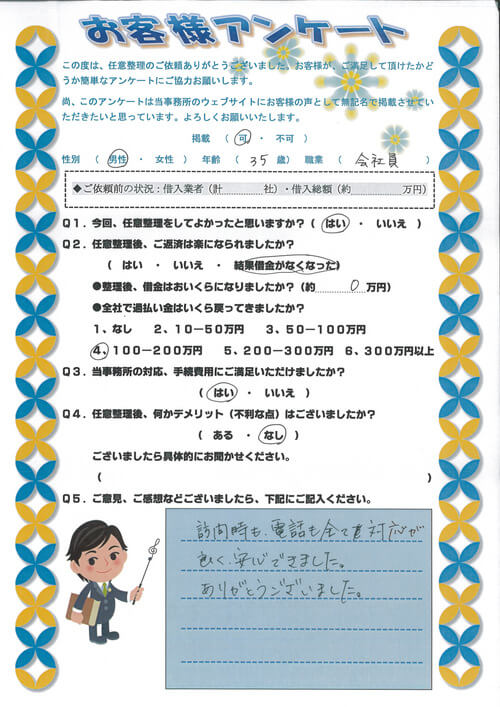 お客様アンケート
この度は、任意整理のご依頼ありがとうございました。お客様が、ご満足して頂けたかど
うか簡単なアンケートにご協力お願いします。
尚、このアンケートは当事務所のウェブサイトにお客様の声として無記名で掲載させてい
ただきたいと思っています。よろしくお願いいたします。
掲載 ( 可 ・ 不可 )
性別 ( 男性 ・ 女性 ) 年齢 ( 35 歳) 職業 ( 会社員 )
◆ご依頼前の状況:借入業者(計 社)・借入総額(約 万円)
Q1.今回、任意整理をしてよかったと思いますか?( はい ・ いいえ )
Q2.任意整理後、ご返済は楽になられましたか?
( はい ・ いいえ ・ 結果借金がなくなった)
●整理後、借金はおいくらになりましたか?(約 0 万円)
●全社で過払い金はいくら戻ってきましたか?
1、なし 2、10-50万円 3、50-100万円
4、100-200万円 5、200-300万円 6、300万円以上
Q3.当事務所の対応、手続費用にご満足いただけましたか?
( はい ・ いいえ )
Q4.任意整理後、何かデメリット(不利な点)はございましたか?
( ある ・ なし )
ございましたら具体的にお聞かせください。
( )
Q5.ご意見、ご感想などございましたら、下記にご記入ください。
訪問時も、電話も全て対応が
良く、安心できました。
ありがとうございました。